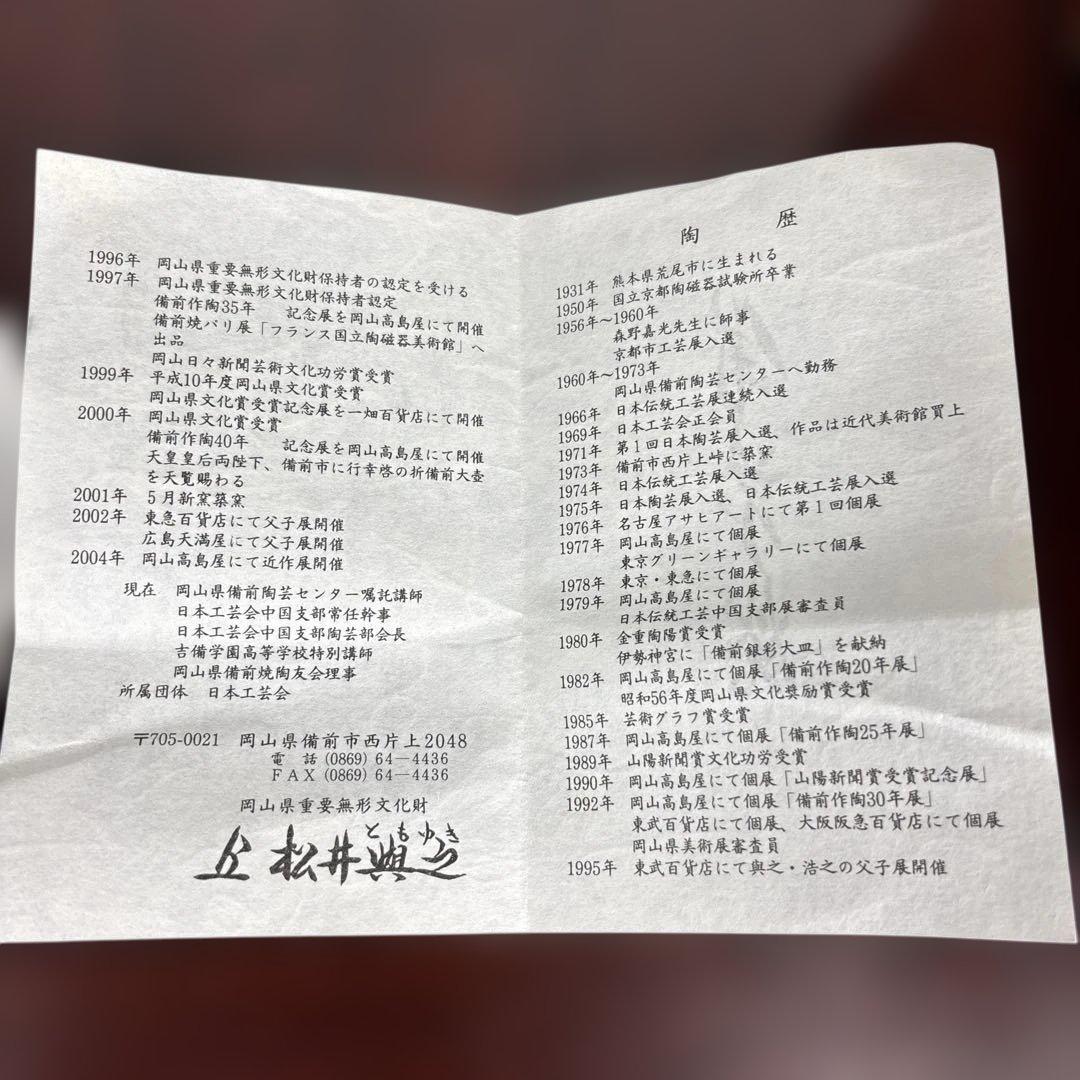 陶歴
1931年 熊本県荒尾市に生まれる
1950年 国立京都陶磁器試験所卒業
1956年～1960年
森野嘉光先生に師事
京都市工芸展入選
1960年～1973年
岡山県備前陶芸センターへ勤務
1966年 日本伝統工芸展連続入選
1969年 日本工芸会正会員
1971年 第1回日本陶芸展入選、作品は近代美術館買上
1973年 備前市西片上峠に築窯
1974年 日本伝統工芸展入選
1975年 日本陶芸展入選、日本伝統工芸展入選
1976年 名古屋アサヒアートにて第1回個展
1977年 岡山高島屋にて個展
東京グリーンギャラリーにて個展
1978年 東京・東急にて個展
1979年 岡山高島屋にて個展
日本伝統工芸中国支部展審査員
1980年 金重陶陽賞受賞
伊勢神宮に「備前銀彩大皿」を献納
1982年 岡山高島屋にて個展「備前作陶20年展」
昭和56年度岡山県文化奨励賞受賞
1985年 芸術グラフ賞受賞
1987年 岡山高島屋にて個展「備前作陶25年展」
1989年 山陽新聞賞文化功労受賞
1990年 岡山高島屋にて個展「山陽新聞賞受賞記念展」
1992年 岡山高島屋にて個展「備前作陶30年展」
東武百貨店にて個展、大阪阪急百貨店にて個展
岡山県美術展審査員
1995年 東武百貨店にて與之・浩之の父子展開催
1996年 岡山県重要無形文化財保持者の認定を受ける
1997年 岡山県重要無形文化財保持者認定
備前作陶35年 記念展を岡山高島屋にて開催
備前焼パリ展「フランス国立陶磁器美術館」へ
出品
岡山日々新聞芸術文化功労賞受賞
1999年 平成10年度岡山県文化賞受賞
岡山県文化賞受賞記念展を一畑百貨店にて開催
2000年 岡山県文化賞受賞
備前作陶40年 記念展を岡山高島屋にて開催
天皇皇后両陛下、備前市に行幸啓の折備前大壺
を天覧賜わる
2001年 5月新窯築窯
2002年 東急百貨店にて父子展開催
広島天満屋にて父子展開催
2004年 岡山高島屋にて近作展開催
現在 岡山県備前陶芸センター嘱託講師
日本工芸会中国支部常任幹事
日本工芸会中国支部陶芸部会長
吉備学園高等学校特別講師
岡山県備前焼陶友会理事
所属団体 日本工芸会
〒705-0021 岡山県備前市西片上2048
電話 (0869) 64－4436
FAX (0869) 64－4436
岡山県重要無形文化財
ともゆき
松井與之